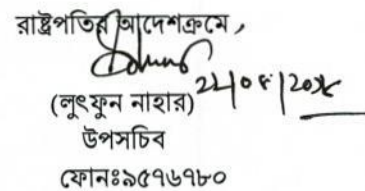 রাষ্ট্রপতির আদেশক্রমে,
(লুৎফুন নাহার)
উপসচিব
ফোনঃ৯৫৭৬৭৮০